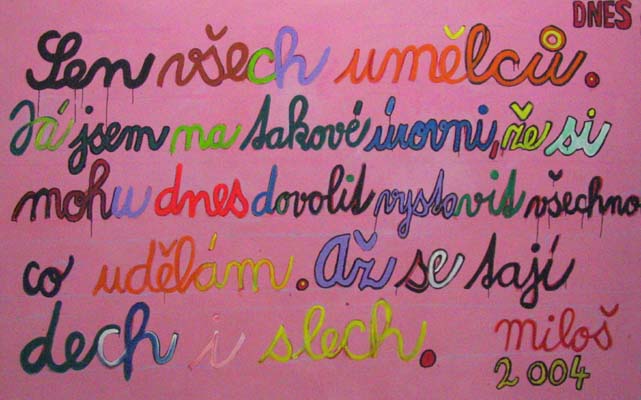 DNES
Sen všech umělců.
Já jsem na takové úrovni, že si
mohu dnes dovolit vystavit všechno
co udělám. Až se tají
dech i slech. miloš
2004